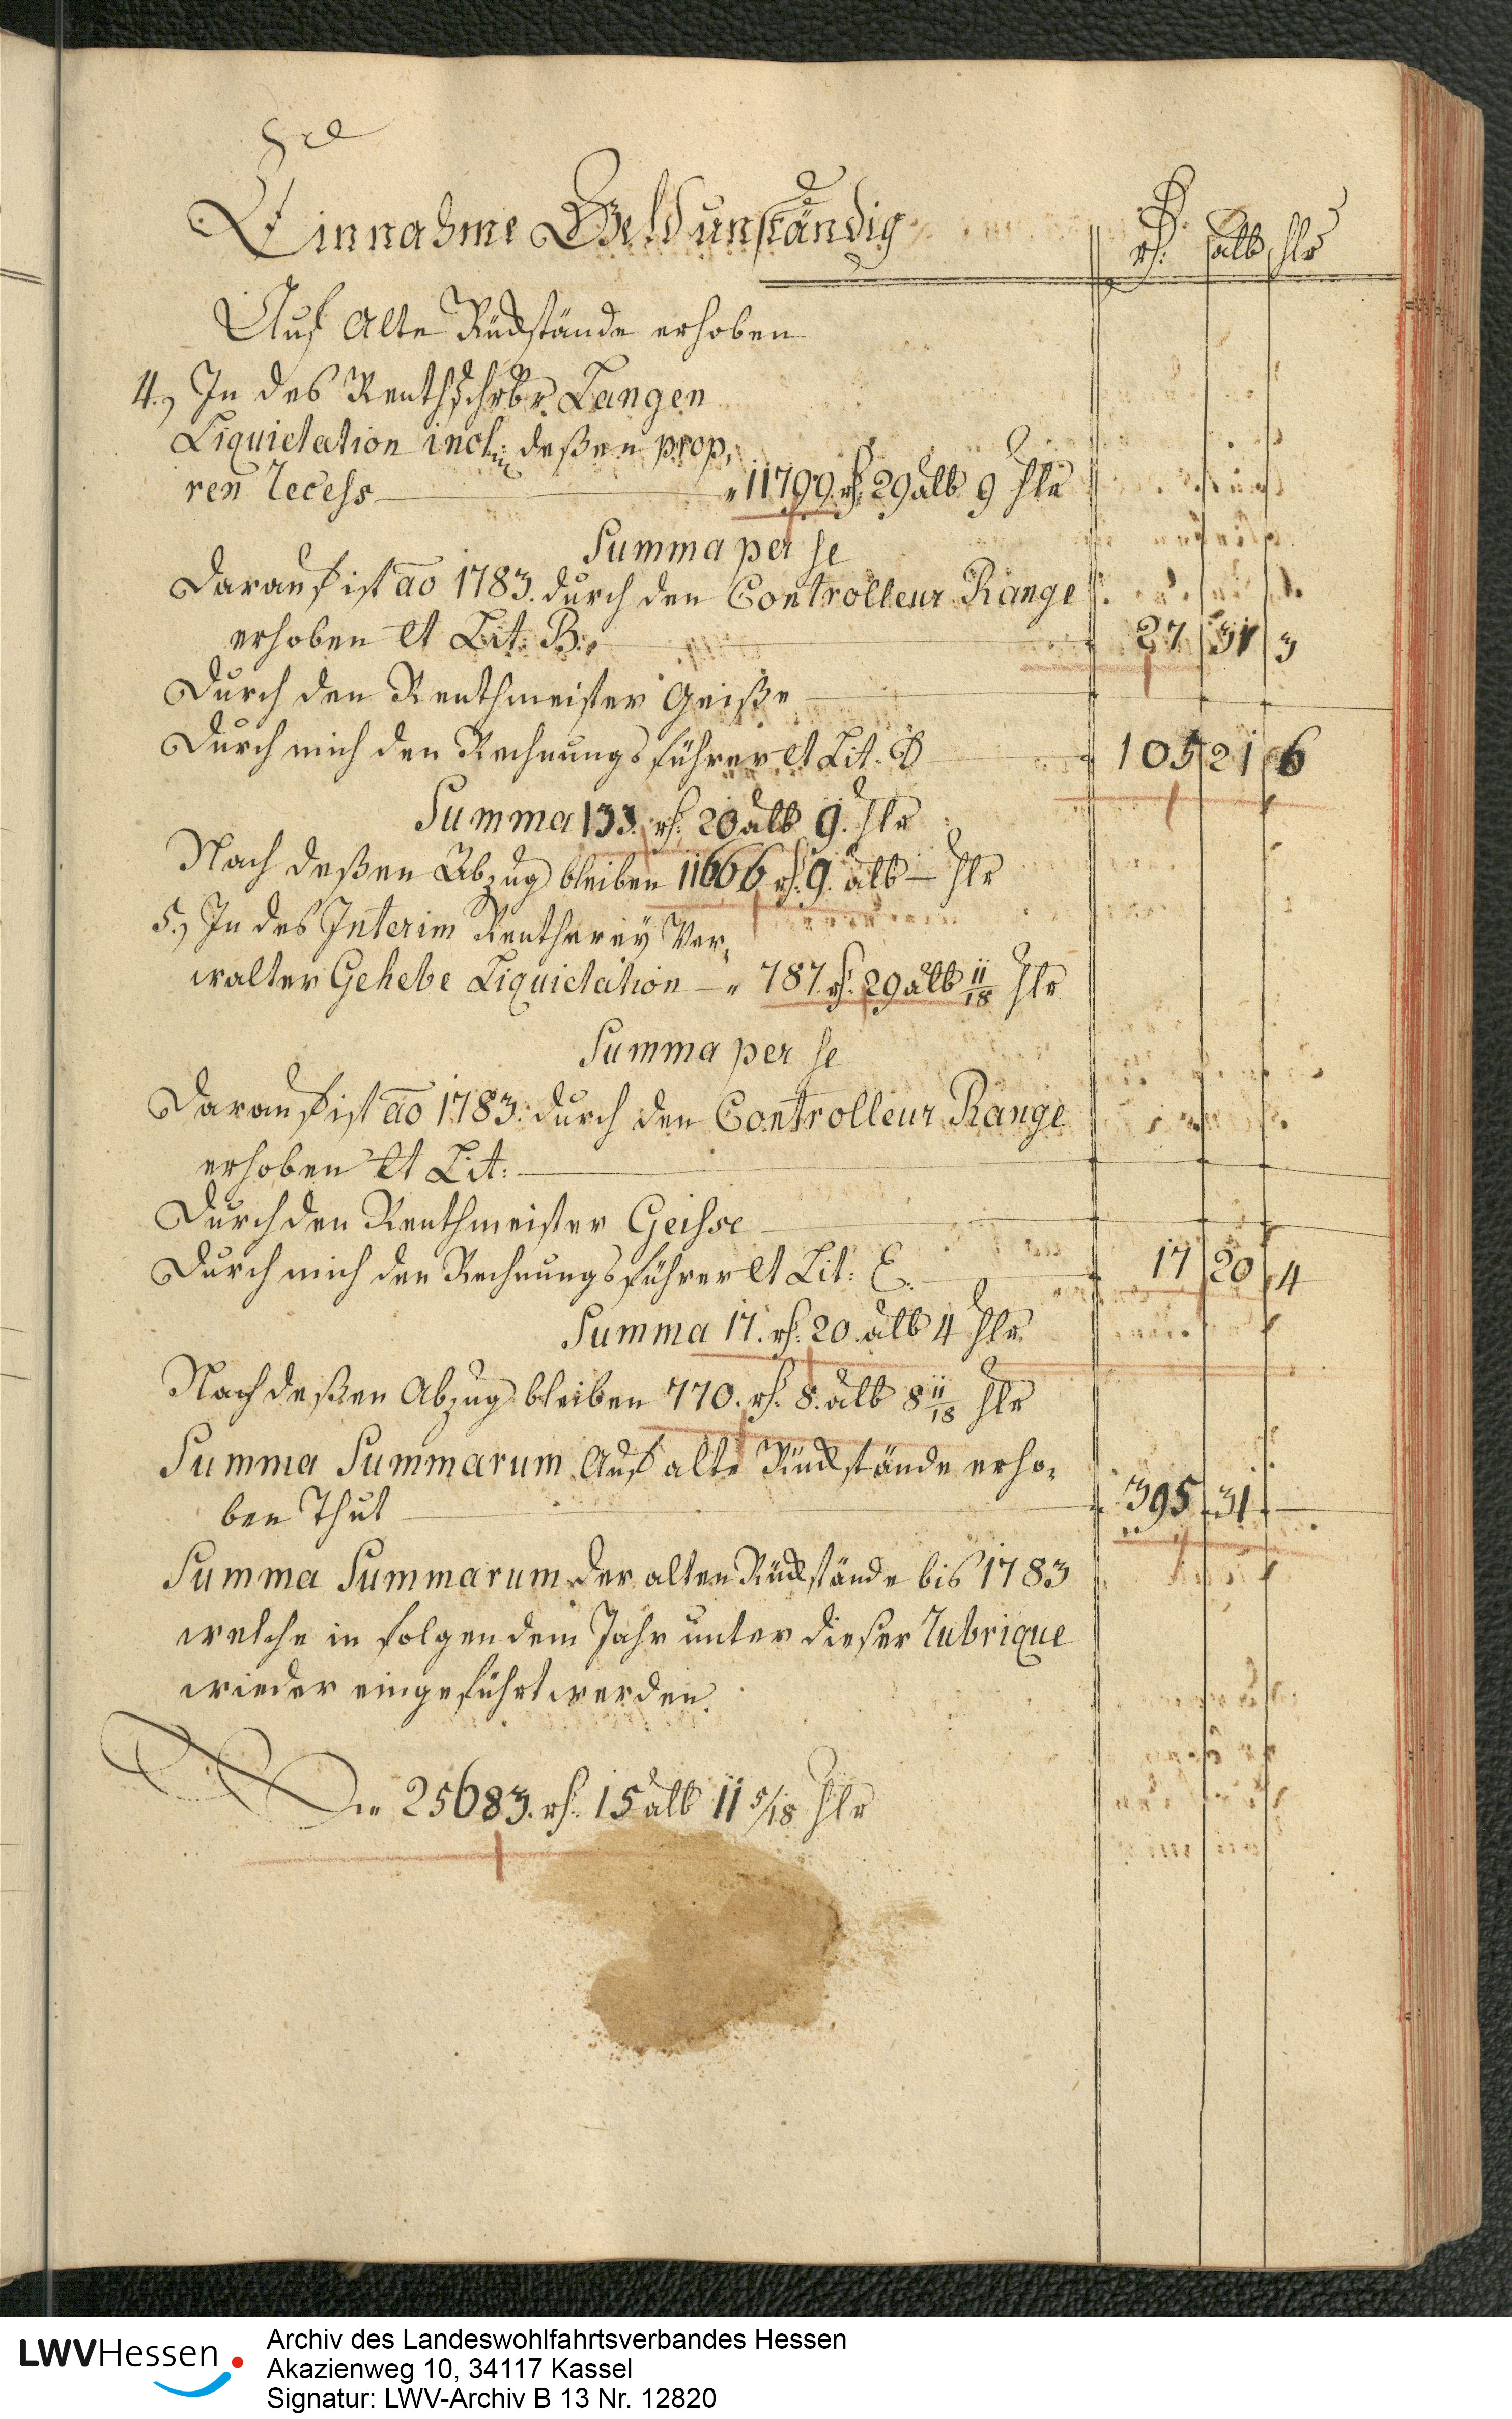 Einnahme Geld unständig
rh. alb hlr
Auf Alte Rückstände erhoben
4., In des Renthschrbr. Langen
Liquidation incl: deßen prop,
ren Recess " 11799. rh. 29 alb 9 hlr
Summa per se
Darauf ist ao 1783. durch den Controlleur Range
erhoben et Lit: B: 27 31 3
Durch den Renthmeister Geiße
Durch mich den Rechnungsführer et Lit. D 105 21 6
Summa 133. rh. 20 alb 9. hlr
Nach deßen Abzug bleiben 11666 rh. 9. alb — hlr
5., In des Interim Rentherey Ver,
walter Gehebe Liquidation — " 787. rh. 29 alb 11/18 hlr
Summa per se
Darauf ist ao 1783. durch den Controlleur Range
erhoben et Lit:
Durch den Renthmeister Geisse
Durch mich den Rechnungsführer et Lit: E. 17 20 4
Summa 17. rh. 20. alb 4 hlr
Nach deßen Abzug bleiben 770. rh. 8. alb 8 11/18 hlr
Summa Summarum Auf alte Rückstände erho,
ben Thut 395 31 —
Summa Summarum der alten Rückstände bis 1783
welche in folgendem Jahr unter dieser Rubrique
wieder eingeführt werden.
" 25683. rh. 15 alb 11 5/18 hlr
LWVHessen
Archiv des Landeswohlfahrtsverbandes Hessen
Akazienweg 10, 34117 Kassel
Signatur: LWV-Archiv B 13 Nr. 12820